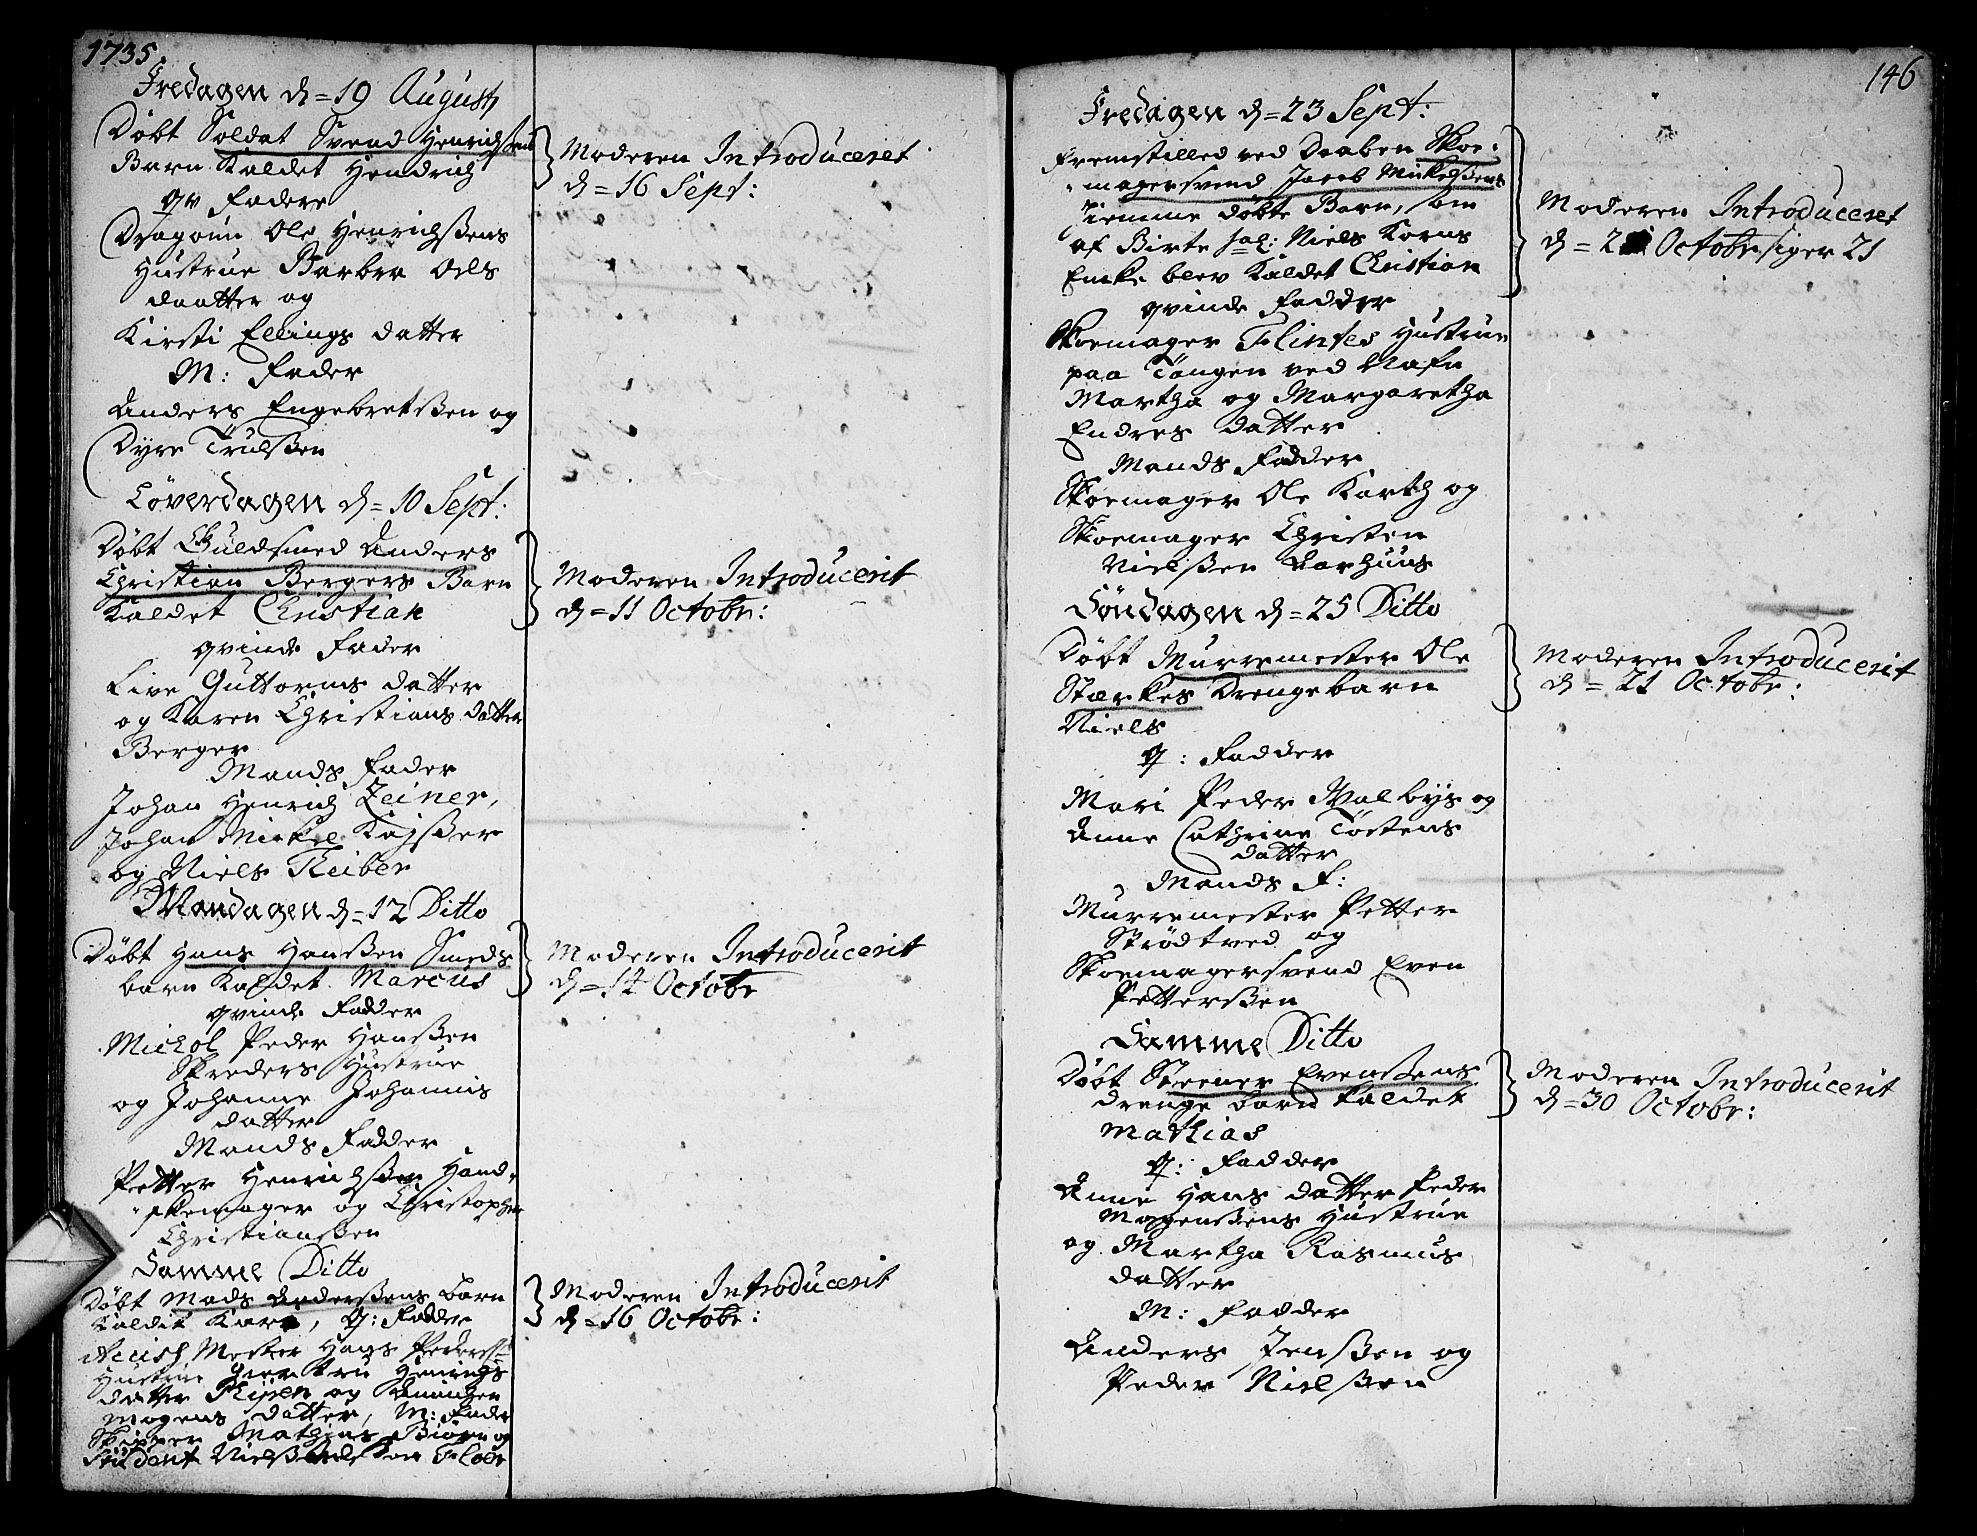 1735
Fredagen d=19 Augusti
Døbt Soldat Svend Henrichsens
Barn Kaldet Hendrich
qv Fadere
Dragoun Ole Henrichsens
Hustrue Barbra Ols
daatter og
Kirsti Ellings datter
M: Fader
Anders Engebretsen og
Dyre Trulsen
Moderen Introduceret
d=16 Sept:
Løverdagen d=10 Sept:
Døbt Guldsmed Anders
Christian Bergers Barn
Kaldet Christian
qvinde Fader
Live Guttorms datter
og Karen Christians datter
Berger
Mands Fader
Johan Henrich Zeiner,
Johan Mickel Kajsser
og Niels Treiber
Moderen Introducerit
d=11 Octobr:
Mandagen d=12 Ditto
Døbt Hans Hanssen Smeds
barn Kaldet Marcus
qvinde Fadder
Michol Peder Hanssen
Skreders Hustrue
og Johanne Johannis
datter
Mands Fadder
Petter Henrichssen Hand-
skemager og Christopher
Christianssen
Moderen Introducerit
d=14 Octobr
Samme Ditto
Døbt Mads Anderssens barn
Kaldit Kari, Q: Fadder
Mester Hans Peders
Hustrue Giertru Henrichs
datter og
Mogens datter, M: Fader
Skipper Mathias Biørn og
Student
Moderen Introducerit
d=16 Octobr:
146
Fredagen d=23 Sept:
Fremstilled ved Daaben Skoe-
magersvend Jacob Mickelssens
hiemme døbte Barn, som
af Birte sal: Niels Korns
Encke blev Kaldet Christian
qvinde Fadder
Skoemager Flintes Hustrue
paa Tangen ved Nafn
Martha og Margaretha
Endres datter
Mands Fadder
Skoemager Ole Karth og
Skoemager Christen
Nielssen Aarhuus
Moderen Introduceret
d=2 Octobr siger 21
Søndagen d=25 Ditto
Døbt Murremester Ole
Stærkes Drengebarn
Niels
Q: Fadder
Mari Peder Walbys og
Anne Cathrine Tostens
datter
Mands F:
Murremester Petter
Strødtved og
Skoemagersvend Even
Petterssen
Moderen Introducerit
d=21 Octobr:
Samme Ditto
Døbt Steener Evenssens
drenge barn kaldet
Mathias
Q: Fadder
Anne Hans datter Peder
Mogenssens Hustrue
og Martha Rasmus
datter
M: Fadder
Anders Jenssen og
Peder Nielssen
Moderen Introducerit
d=30 Octobr: